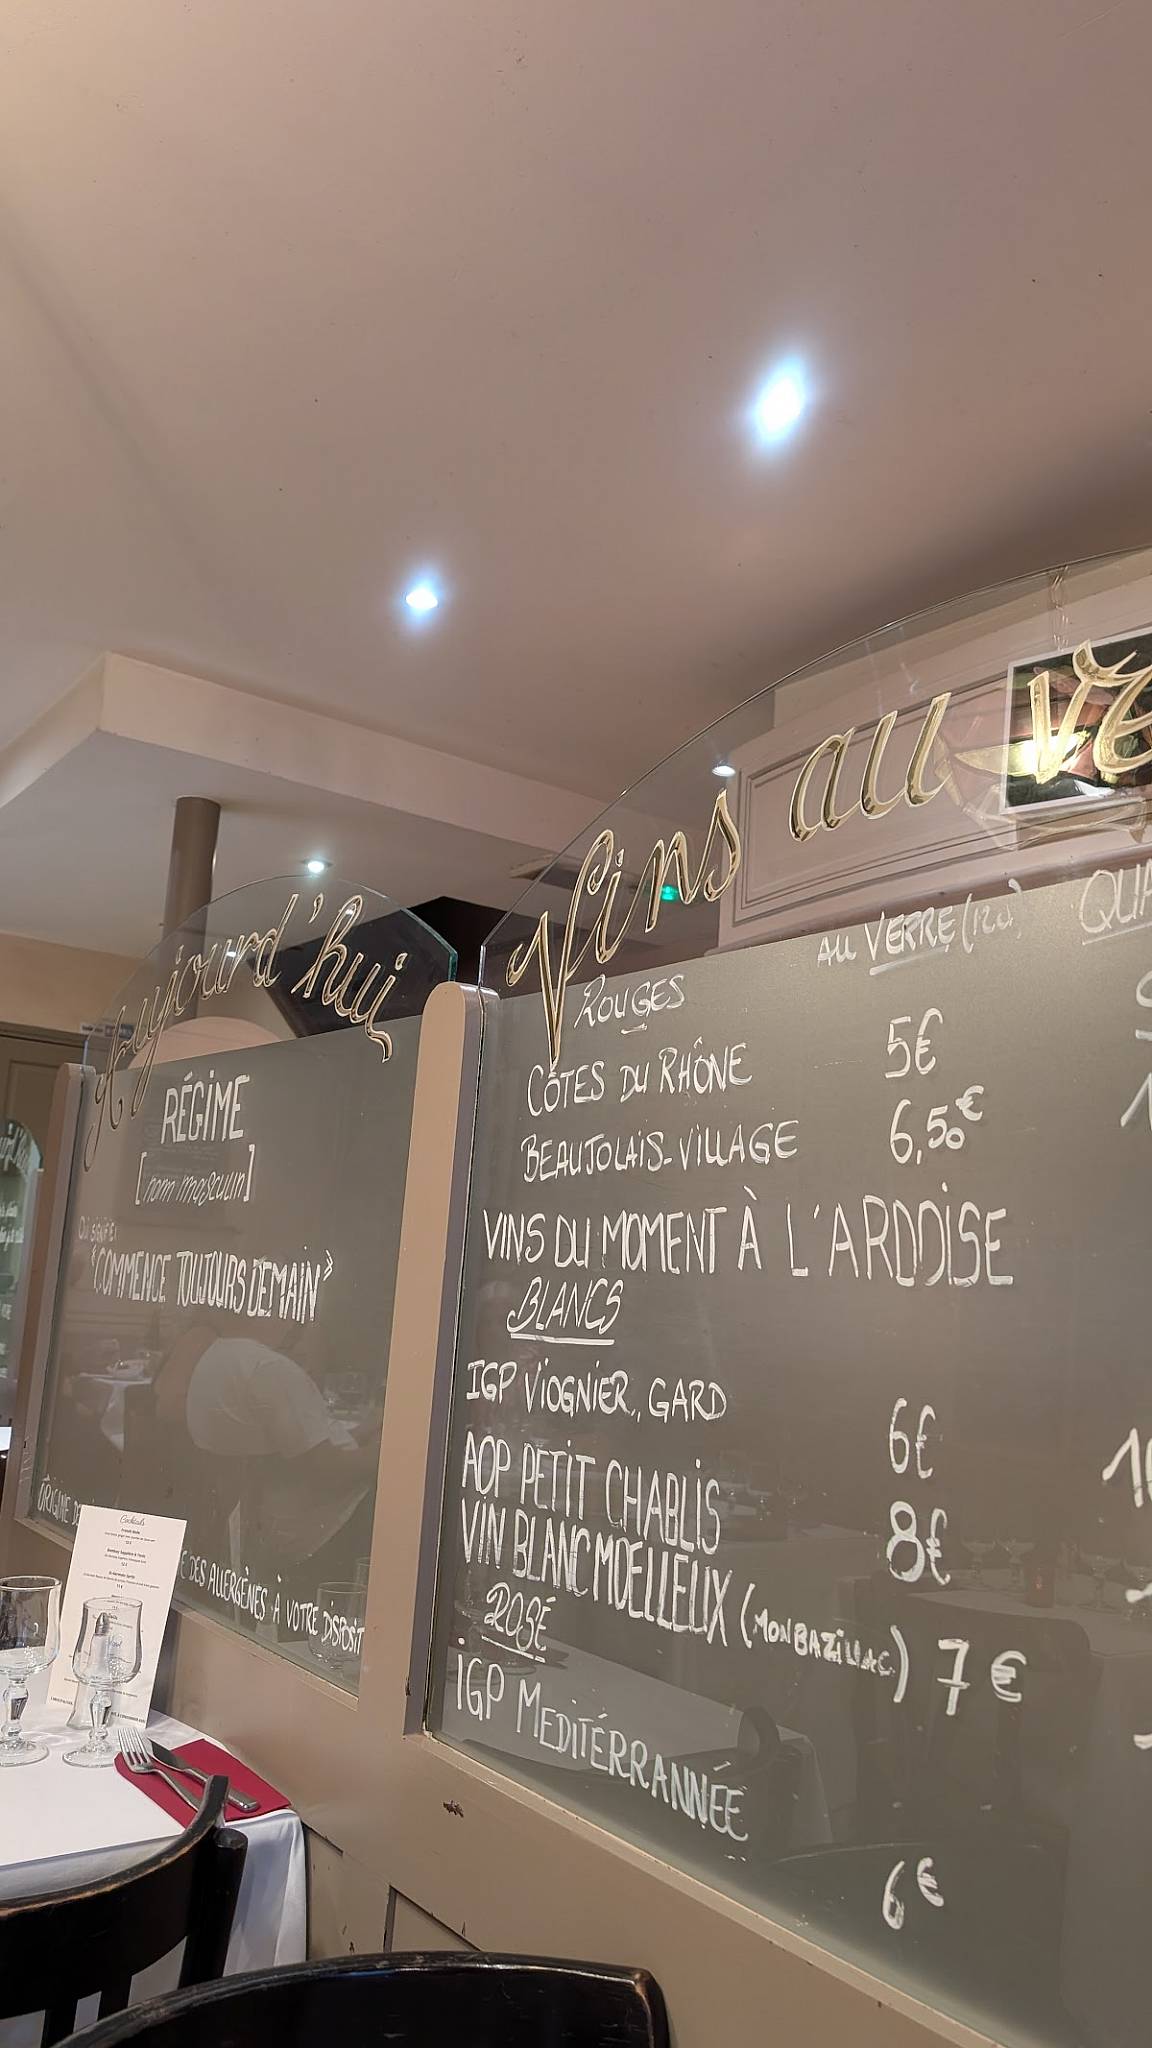 Aujourd'hui
RÉGIME
[nom masculin]
QUI SIGNIFIE:
"COMMENCE TOUJOURS DEMAIN"
ORIGINE DE
DES ALLERGÈNES À VOTRE DISPOSIT
Cocktails
Vins au ve
AU VERRE (12cl) QUA
ROUGES
CÔTES DU RHÔNE 5€
BEAUJOLAIS-VILLAGE 6,50€
VINS DU MOMENT À L'ARDOISE
BLANCS
IGP VIOGNIER, GARD 6€
AOP PETIT CHABLIS 8€
VIN BLANC MOELLEUX (MONBAZILLAC) 7€
ROSÉ
IGP MEDITÉRRANNÉE
6€